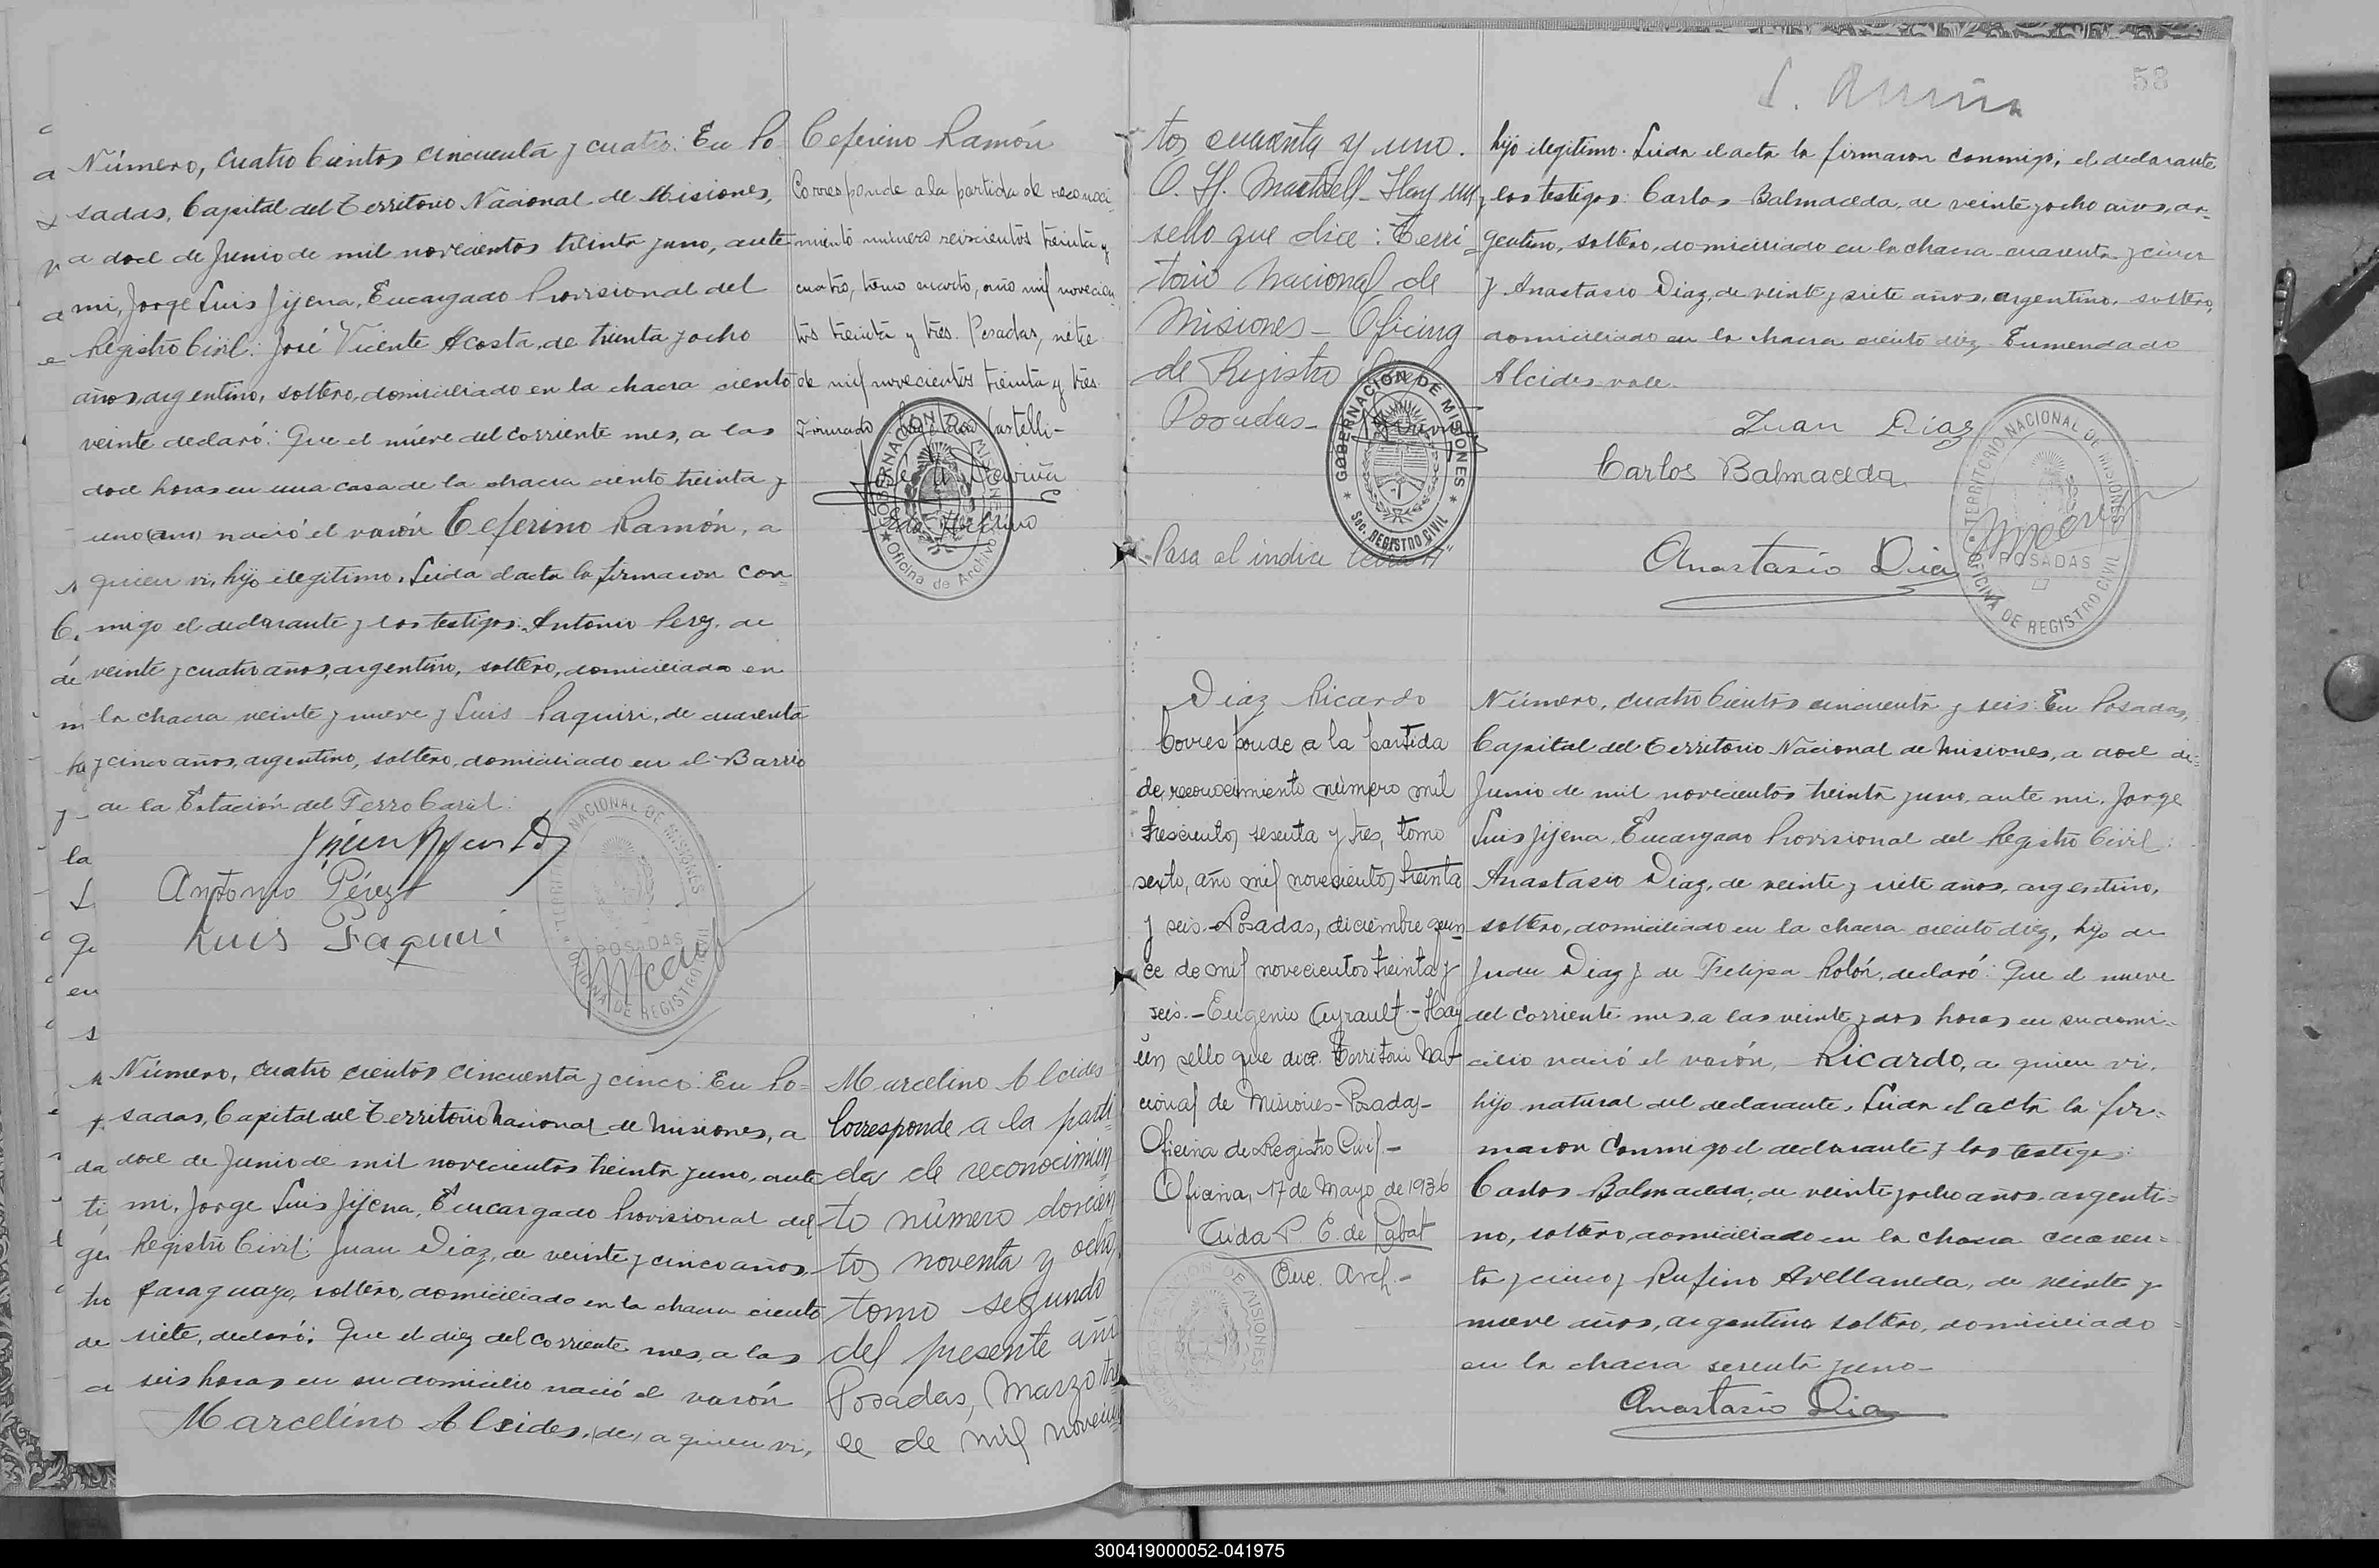 Número, cuatro cientos cincuenta y cuatro: En Po
sadas, Capital del Territorio Nacional de Misiones,
a doce de Junio de mil novecientos treinta y uno, ante
mi, Jorge Luis Jijena, Encargado Provisional del
Registro Civil: José Vicente Acosta, de treinta y ocho
años, argentino, soltero, domiciliado en la chacra ciento
veinte declaró: Que el nueve del corriente mes, a las
doce horas en una casa de la chacra ciento treinta y
uno nació el varón Ceferino Ramón, a
quien vi, hijo ilegitimo. Leida el acta la firmaron con=
migo el declarante y los testigos: Antonio Perez, de
veinte y cuatro años, argentino, soltero, domiciliado en
la chacra veinte y nueve y Luis Paquiri, de cuarenta
y cinco años, argentino, soltero, domiciliado en el Barrio
de la Estación del Ferro Carril:
Antonio Pérez
Luis Faquiri
TERRITORIO NACIONAL DE MISIONES
POSADAS
OFICINA DE REGISTRO CIVIL
Ceferino Ramón
Corresponde a la partida de reconoci-
miento número seiscientos treinta y
cuatro, tomo cuarto, año mil novecien-
tos treinta y tres. Posadas,
de mil novecientos treinta y tres.
Firmado Castelli-
GOBERNACION DE MISIONES
Oficina de Archivo
Número, cuatro cientos cincuenta y cinco: En Po=
sadas, Capital del Territorio Nacional de Misiones, a
doce de Junio de mil novecientos treinta y uno, ante
mi, Jorge Luis Jijena, Encargado Provisional del
Registro Civil: Juan Diaz, de veinte y cinco años,
paraguayo, soltero, domiciliado en la chacra ciento
siete, declaró: Que el diez del corriente mes, a las
seis horas en su domicilio nació el varón
Marcelino Alcides, a quien vi,
Marcelino Alcides
Corresponde a la parti
da de reconocimien
to número doscien
tos noventa y ocho,
tomo segundo
del presente año
Posadas, Marzo
de mil novecien
tos cuarenta y uno.
O. H. Hay un
sello que dice: Terri-
torio Nacional de
Misiones - Oficina
de Registro Civil
Posadas-
GOBERNACIÓN DE MISIONES
Sec. REGISTRO CIVIL
Pasa al indice letra "A"
58
hijo ilegitimo. Leida el acta la firmaron conmigo, el declarante
y los testigos: Carlos Balmaceda, de veinte y ocho años, ar-
gentino, soltero, domiciliado en la chacra cuarenta y cinco
y Anastasio Diaz, de veinte y siete años, argentino, soltero,
domiciliado en la chacra ciento diez. Enmendado
Alcides vale.
Juan Diaz
Carlos Balmaceda
Anastasio Diaz
TERRITORIO NACIONAL DE MISIONES
POSADAS
OFICINA DE REGISTRO CIVIL
Diaz Ricardo
Corresponde a la partida
de reconocimiento número mil
trescientos sesenta y tres, tomo
sexto, año mil novecientos treinta
y seis.-Posadas, diciembre quin-
ce de mil novecientos treinta y
seis.-Eugenio Ayrault-Hay
un sello que dice: Territorio Na-
cional de Misiones-Posadas-
Oficina de Registro Civil.-
Oficina, 17 de Mayo de 1936
E. de Rabat
Enc. Arch.-
Número, cuatro cientos cincuenta y seis: En Posadas,
Capital del Territorio Nacional de Misiones, a doce de=
Junio de mil novecientos treinta y uno, ante mi, Jorge
Luis Jijena, Encargado Provisional del Registro Civil:
Anastasio Diaz, de veinte y siete años, argentino,
soltero, domiciliado en la chacra ciento diez, hijo de
Juan Diaz y de Felipa Rolón, declaró: Que el nueve
del corriente mes, a las veinte y dos horas en su domi=
cilio nació el varón, Ricardo, a quien vi,
hijo natural del declarante. Leida el acta la fir=
maron conmigo el declarante y los testigos:
Carlos Balmaceda, de veinte y ocho años, argenti=
no, soltero, domiciliado en la chacra cuaren=
ta y cinco y Rufino Avellaneda, de veinte y
nueve años, argentino soltero, domiciliado
en la chacra sesenta y uno-
Anastasio Diaz
300419000052-041975